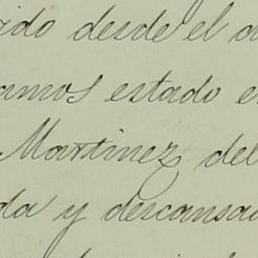 ido desde el d
amos estado e
Martinez del
da y descansa